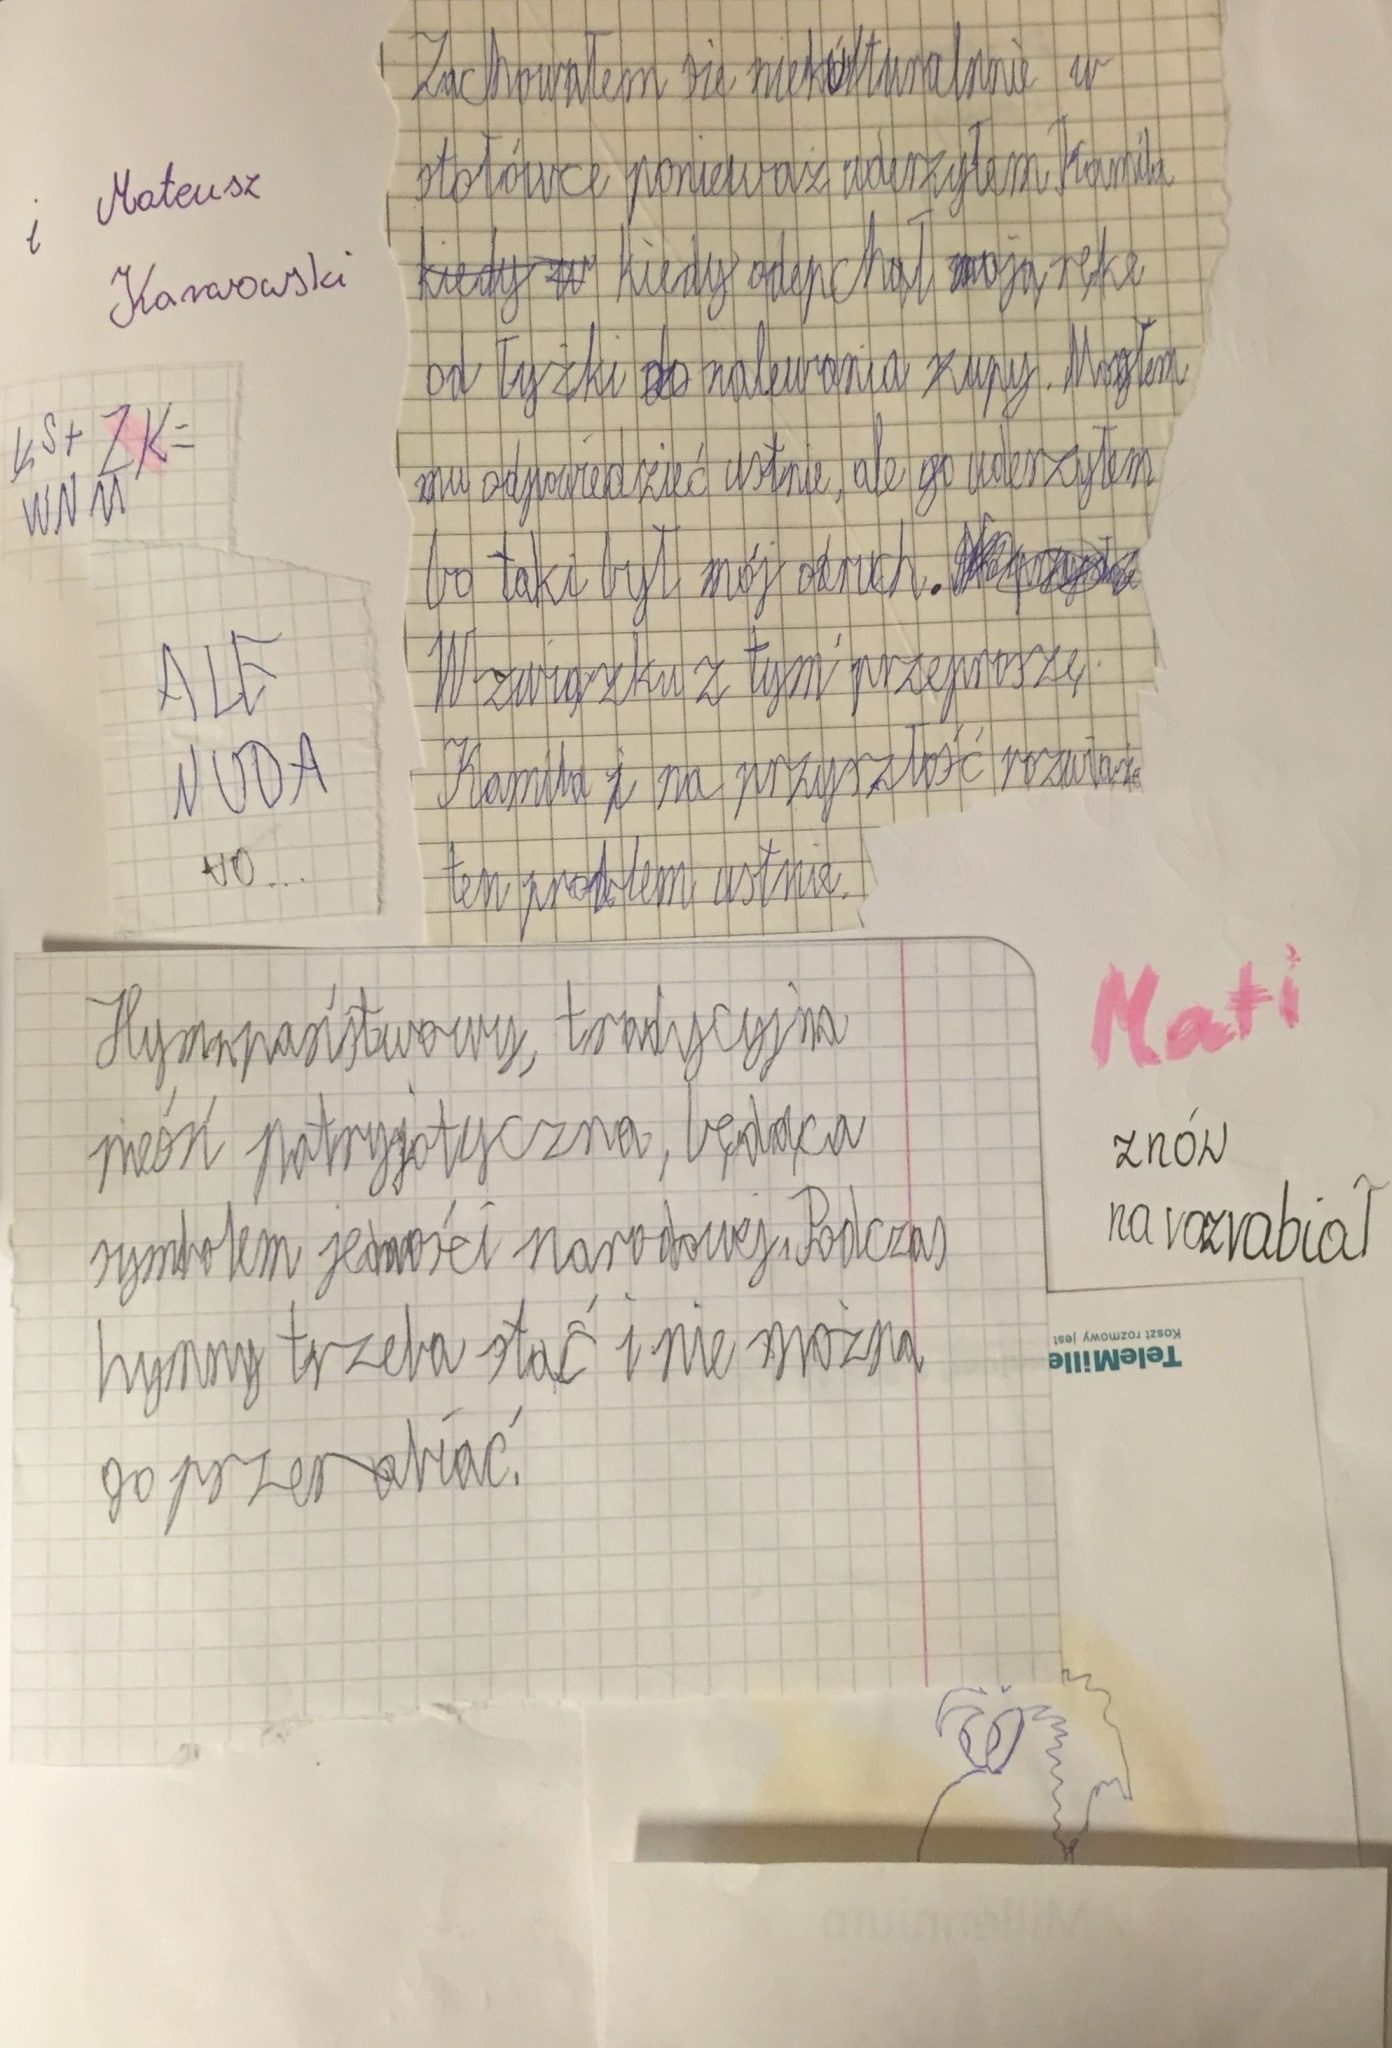 Zachowałem się niekulturalnie w
stołówce ponieważ uderzyłem Kamila
kiedy w kiedy odepchął moją rękę
od łyżki do nalewania zupy. Mogłem
mu odpowiedzieć ustnie, ale go uderzyłem
bo taki był mój odruch.
W związku z tym przeproszę
Kamila i na przyszłość rozwiążę
ten problem ustnie.
i Mateusz
Karwowski
KS+ ZK=
WNM
ALE
NUDA
NO...
Hymn państwowy, tradycyjna
pieśń patryjotyczna, będąca
symbolem jedności narodowej. Podczas
hymny trzeba stać i nie można
go przerabiać.
Mati
znów
narozrabiał
Koszt rozmowy jest
TeleMille
Millennium